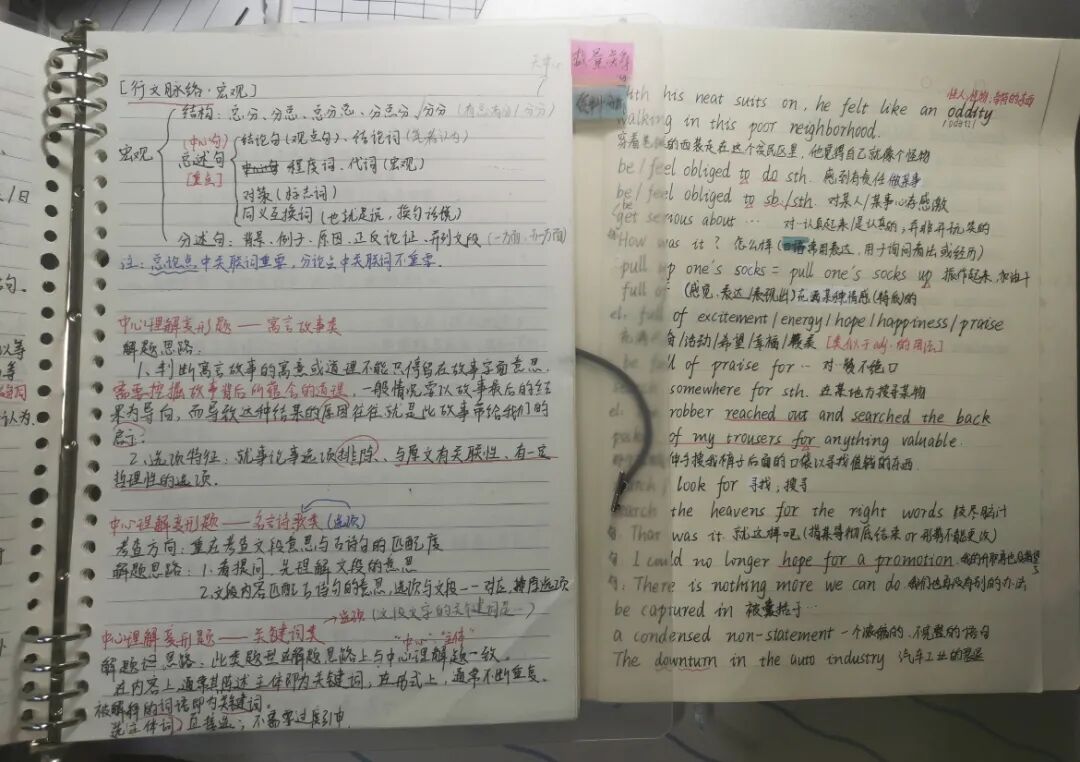 [行文脉络·宏观]
结构：总分、分总、总分总、分总分、分分（有总有分/分分）
宏观
(中心句)
总述句
[重点]
结论句(观点句)、结论词(笔者认为)
程度词、代词(宏观)
对策(标志词)
同义互换词(也就是说，换句话说)
分述句：背景、例子、原因、正反论证、并列文段(一方面，另一方面)
注：总论点中关联词重要，分论点中关联词不重要.
中心理解变形题——寓言故事类
解题思路：
1、判断寓言故事的寓意或道理不能只停留在故事字面意思.
需要挖掘故事背后所蕴含的道理，一般情况要以故事最后的结
果为导向，而导致这种结果的原因往往就是此故事带给我们的
启示；
2、选项特征：就事论事选项排除、与原文有关联性、有一定
哲理性的选项.
中心理解变形题——名言诗歌类 (选项)
考查方向：重在考查文段意思与诗句的匹配度
解题思路：1.看提问，先理解文段的意思
2.文段内容匹配诗句的意思，选项与文段一一对应，择优选项
→选项(文段文字的关键词是…)
中心理解变形题——关键词类 "中心""主体"
解题思路：此类题型在解题思路上与中心理解题一致.
在内容上，通常其陈述主体即为关键词，在形式上，通常不断重复.
被解释的词语即为关键词.
选(主体词)直接选；不需要过度引申.
数量关系
资料分析
With his neat suits on, he felt like an oddity
怪人，怪物，奇特的东西
walking in this poor neighborhood.
/ˈɒdəti/
穿着的西装走在这个贫民区里，他觉得自己就像个怪物
be/feel obliged to do sth. 感到有责任做某事
be/feel obliged to sb./sth. 对某人/某事心存感激
get serious about … 对…认真起来/是认真的；并非开玩笑的
How was it? 怎么样(口语常用表达，用于询问看法或经历)
pull up one's socks = pull one's socks up 振作起来，加油干
full of (感觉、表达/表现出)充满某种情感(特质)的
el: full of excitement/energy/hope/happiness/praise
/活动/希望/幸福/ [类似于adj.的用法]
be full of praise for … 对…赞不绝口
search somewhere for sth. 在某地方搜寻某物
el: The robber reached out and searched the back
pocket of my trousers for anything valuable.
伸手搜我裤子后面的口袋以寻找值钱的东西.
search/look for 寻找；搜寻
search the heavens for the right words 绞尽脑汁
That was it. 就这样吧(指某事彻底结束or形势不能更改)
句: I could no longer hope for a promotion. 我的升职再也没希望了
句: There is nothing more we can do. 我们也再没有别的办法
be captured in 被囊括于…
a condensed non-statement 一个浓缩的、不完整的语句
The downturn in the auto industry 汽车工业的衰退